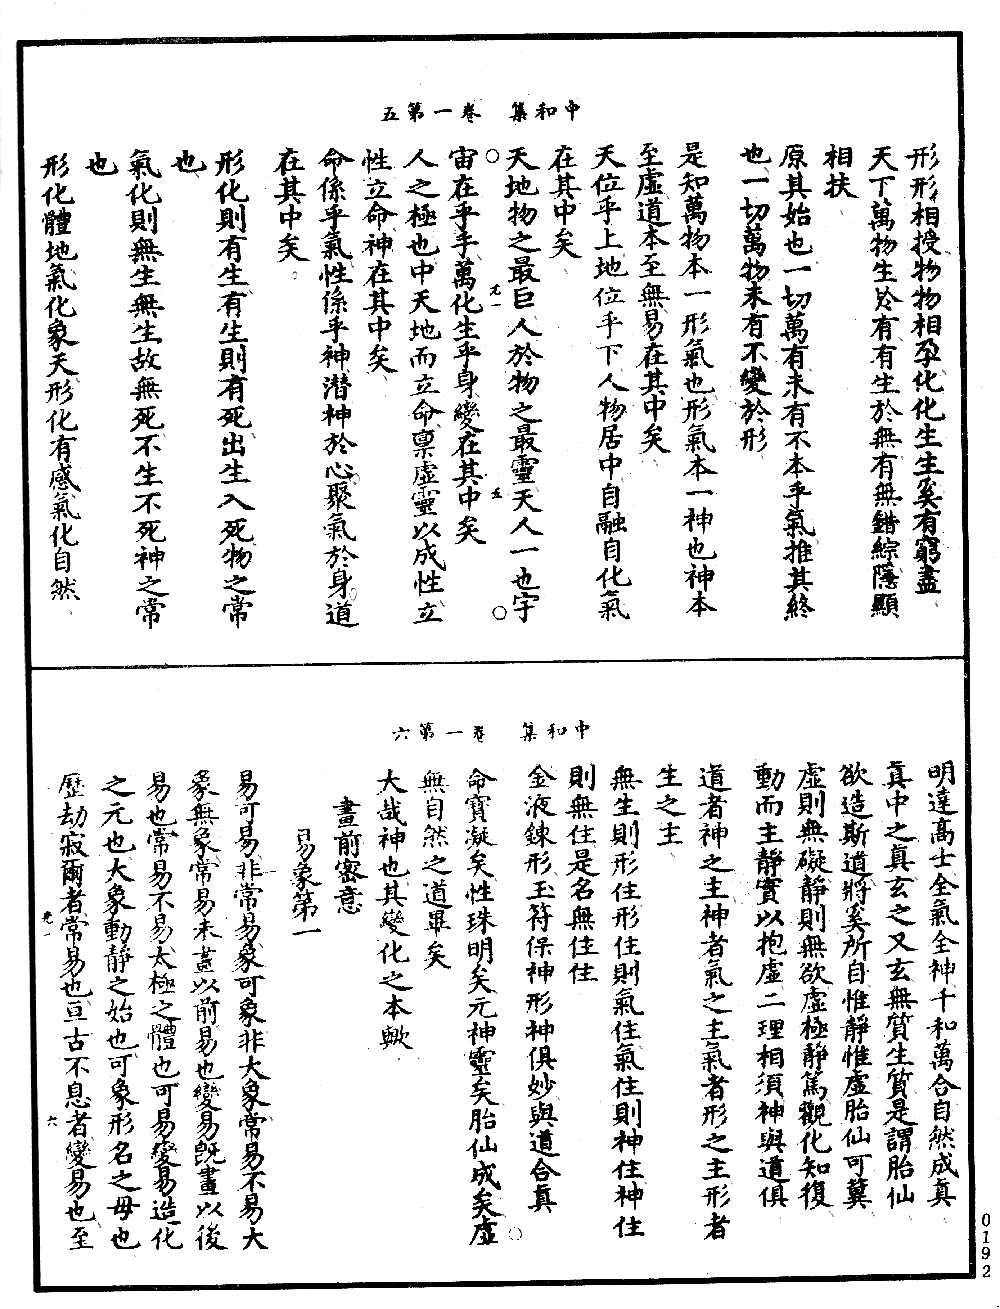 中和集　卷一第五
形形相授物物相孕化化生生奚有窮盡
天下萬物生於有有生於無有無錯綜隱顯
相扶
原其始也一切萬有未有不本乎氣推其終
也一切萬物未有不變於形
是知萬物本一形氣也形氣本一神也神本
至虛道本至無易在其中矣
天位乎上地位乎下人物居中自融自化氣
在其中矣
天地物之最巨人於物之最靈天人一也宇
宙在乎手萬化生乎身變在其中矣
人之極也中天地而立命稟虛靈以成性立
性立命神在其中矣
命係乎氣性係乎神潛神於心聚氣於身道
在其中矣
形化則有生有生則有死出生入死物之常
也
氣化則無生無生故無死不生不死神之常
也
形化體地氣化象天形化有感氣化自然
光一
五
中和集　卷一第六
明達高士全氣全神千和萬合自然成真
真中之真玄之又玄無質生質是謂胎仙
欲造斯道將奚所自惟靜惟虛胎仙可冀
虛則無礙靜則無欲虛極靜篤觀化知復
動而主靜實以抱虛二理相須神與道俱
道者神之主神者氣之主氣者形之主形者
生之主
無生則形住形住則氣住氣住則神住神住
則無住是名無住住
金液鍊形玉符保神形神俱妙與道合真
命寶凝矣性珠明矣元神靈矣胎仙成矣虛
無自然之道畢矣
大哉神也其變化之本歟
畫前密意
易象第一
易可易非常易象可象非大象常易不易大
象無象常易未畫以前易也變易既畫以後
易也常易不易太極之體也可易變易造化
之元也大象動靜之始也可象形名之母也
歷劫寂爾者常易也亘古不息者變易也至
光一
六
0192